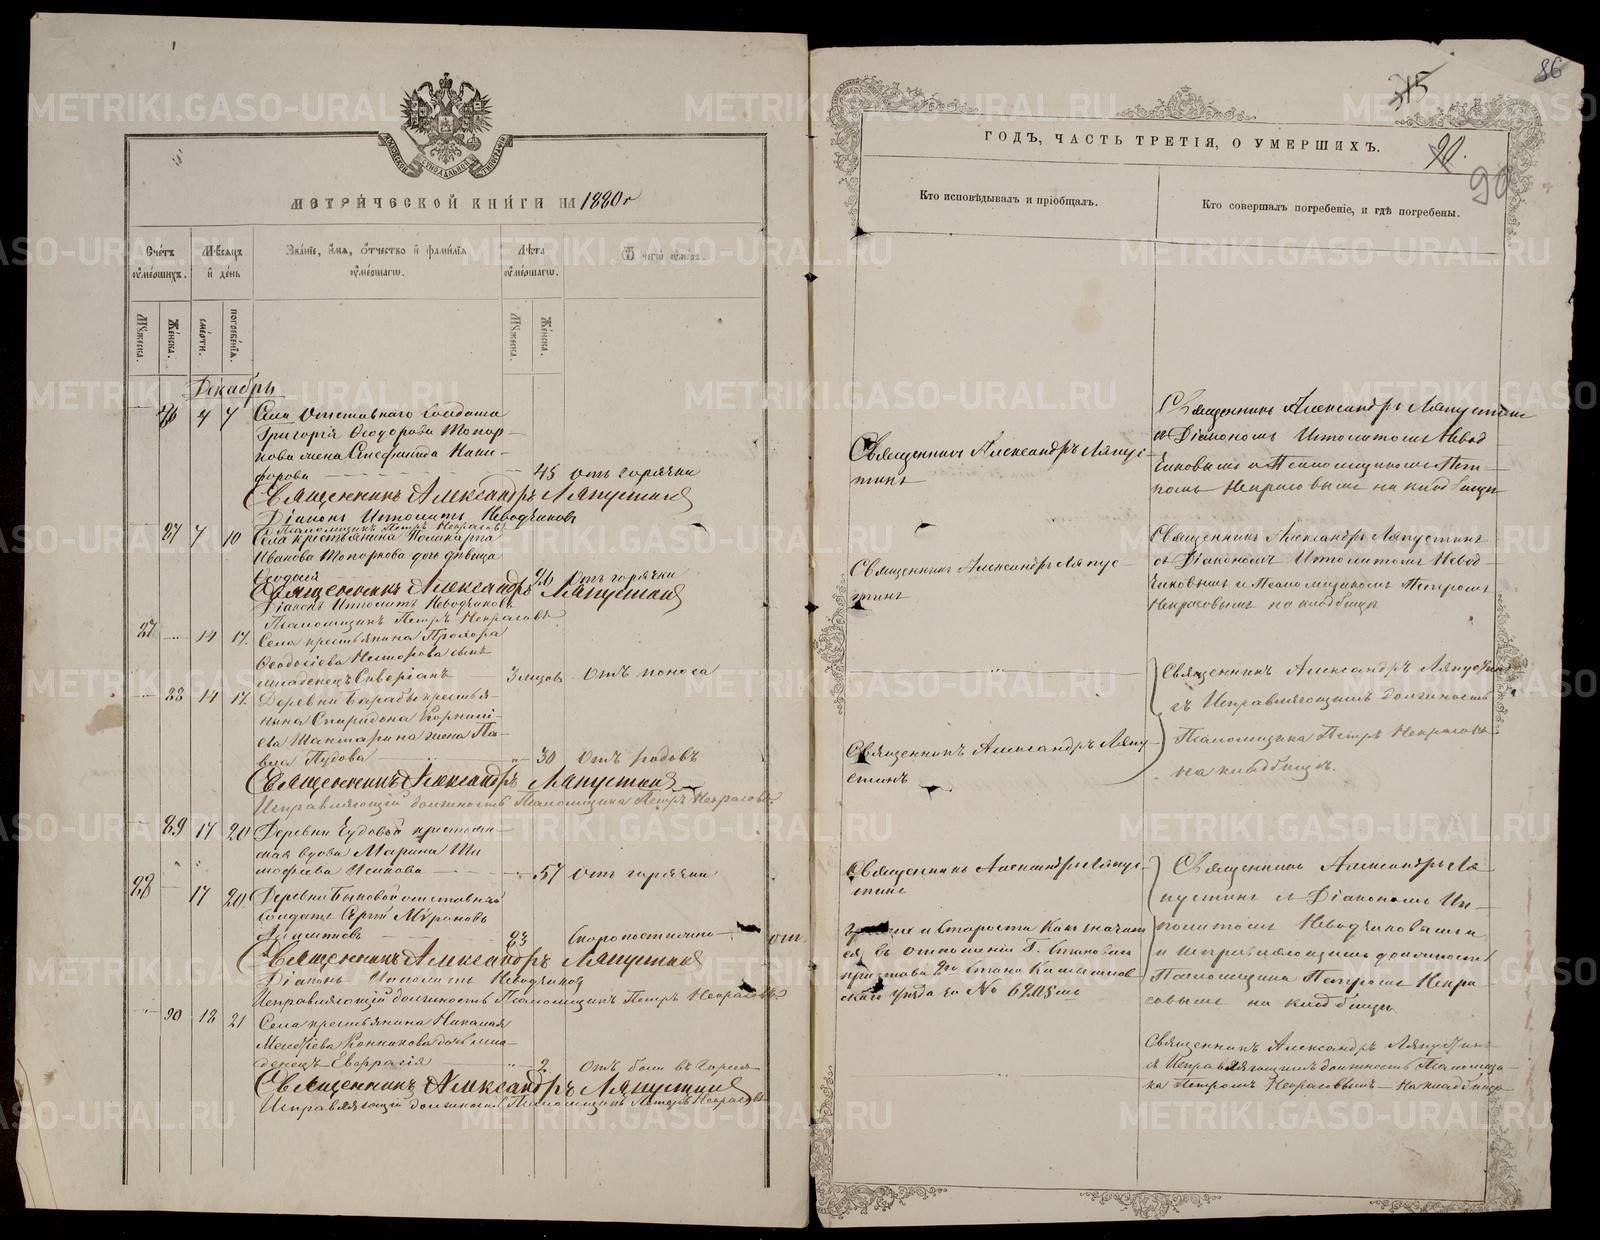 МЕТРИЧЕСКОЙ КНИГИ НА 1880 г
Счетъ умершихъ.
Мѣсяцъ и день
Званіе, имя, отчество и фамилія умершаго.
Лѣта умершаго.
Ѿ чего умеръ.
Мужеска.
Женска.
смерти.
погребенія.
Мужеска.
Женска.
Декабрь
86 4 7 Села отставнаго солдата
Григорія Ѳеодорова Топор-
кова жена Стефанида Ники-
форова 45 отъ горячки
Священникъ Александръ Ляпустинъ
Діаконъ Ипполитъ Неводчиковъ
Псаломщикъ Петръ Некрасовъ
87 7 10 Села крестьянина Поликарпа
Иванова Топоркова дочь дѣвица
20 Отъ горячки
Священникъ Александръ Ляпустинъ
Діаконъ Ипполитъ Неводчиковъ
Псаломщикъ Петръ Некрасовъ
87 14 17. Села крестьянина Прохора
Ѳеодосіева Нестерова сынъ
младенецъ Северіанъ 3 мѣсяц. отъ поноса
88 14 17. Деревни крестья-
нина Спиридона Корнилі-
ева жена Па-
вла Пудова 30 отъ родовъ
Священникъ Александръ Ляпустинъ
Исправляющій должность Псаломщика Петръ Некрасовъ
89 17 20 Деревни крестьян-
ская вдова Марина Ти-
мофеева 57 отъ горячки
88 17 20. Деревни Быковой отставный
солдатъ Сергій
83 скоропостижно
Священникъ Александръ Ляпустинъ
Діаконъ Ипполитъ Неводчиковъ
Исправляющій должность Псаломщикъ Петръ Некрасовъ
90 18 21 Села крестьянина Николая
дочь мла-
денецъ Евпраксія 2 отъ боли въ горлѣ
Священникъ Александръ Ляпустинъ
Исправляющій должность Псаломщикъ Петръ Некрасовъ
86
315
90.
90
ГОДЪ, ЧАСТЬ ТРЕТІЯ, О УМЕРШИХЪ.
Кто исповѣдывалъ и пріобщалъ.
Кто совершалъ погребеніе, и гдѣ погребены.
Священникъ Александръ Ляпус-
тинъ
Священникъ Александръ Ляпустинъ
съ Діакономъ Ипполитомъ Невод-
чиковымъ и Псаломщикомъ Пет-
ромъ Некрасовымъ на кладбищѣ
Священникъ Александръ Ляпус-
тинъ
Священникъ Александръ Ляпустинъ
съ Діакономъ Ипполитомъ Невод-
чиковымъ и Псаломщикомъ Петромъ
Некрасовымъ на кладбищѣ
Священникъ Александръ Ляпустинъ
съ Исправляющимъ должность
Псаломщика Петръ Некрасовъ
на кладбищѣ.
Священникъ Александръ Ляпу-
стинъ
Священникъ Александръ Ляпус-
тинъ
Священникъ Александръ Ля-
пустинъ съ Діакономъ Ип-
политомъ Неводчиковымъ
и исправляющимъ должность
Псаломщика Петромъ Некра-
совымъ на кладбищѣ
отъ
въ отношеніи Г. Становаго
пристава 2го Стана Камышлов-
скаго уѣзда за № 6208мъ
Священникъ Александръ Ляпустинъ
съ Исправляющимъ должность Псаломщи-
ка Петромъ Некрасовымъ на кладбищѣ
METRIKI.GASO-URAL.RU